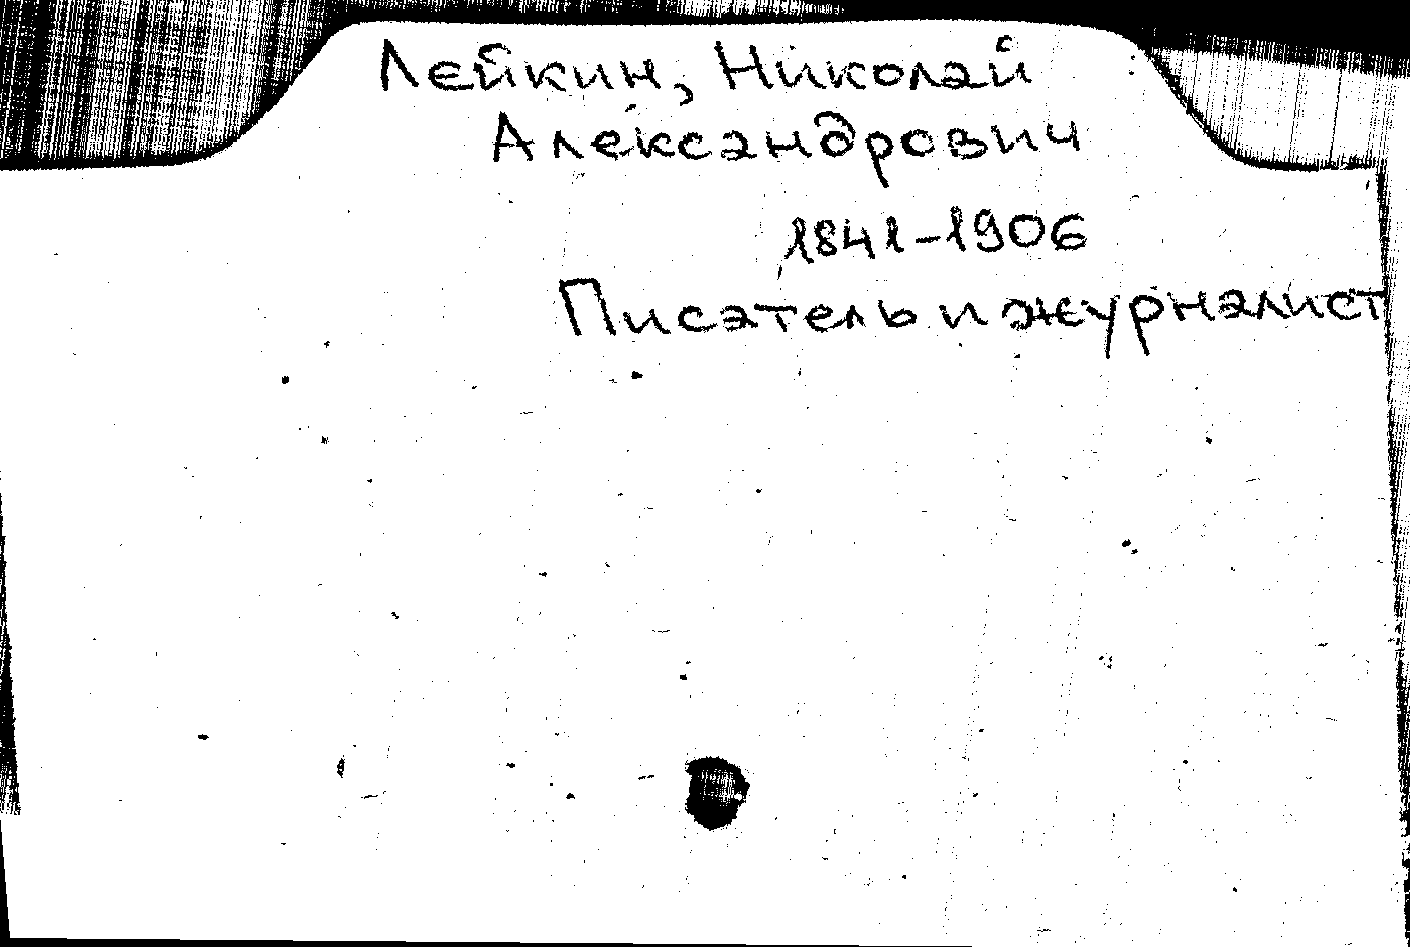 Лейкин, Николай
Александрович
1841-1906
Писатель и журналист